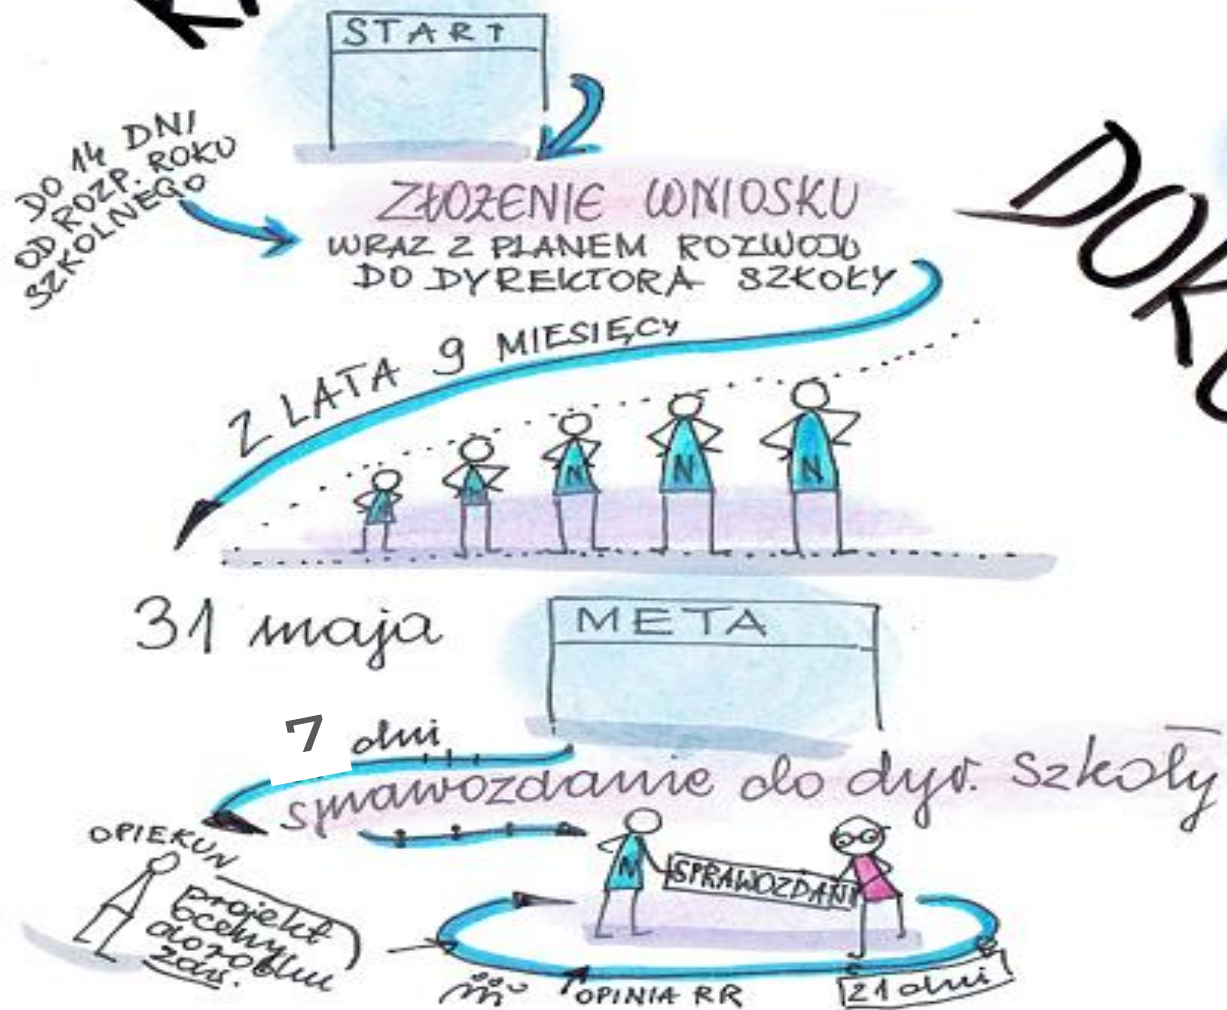 START
DO 14 DNI
OD ROZP. ROKU
SZKOLNEGO
ZŁOŻENIE WNIOSKU
WRAZ Z PLANEM ROZWOJU
DO DYREKTORA SZKOŁY
2 LATA 9 MIESIĘCY
N
N
N
N
N
31 maja
META
7 dni
sprawozdanie do dyr. szkoły
OPIEKUN
projekt
oceny
dorobku
zaw.
N
SPRAWOZDANI
OPINIA RR
21 dni